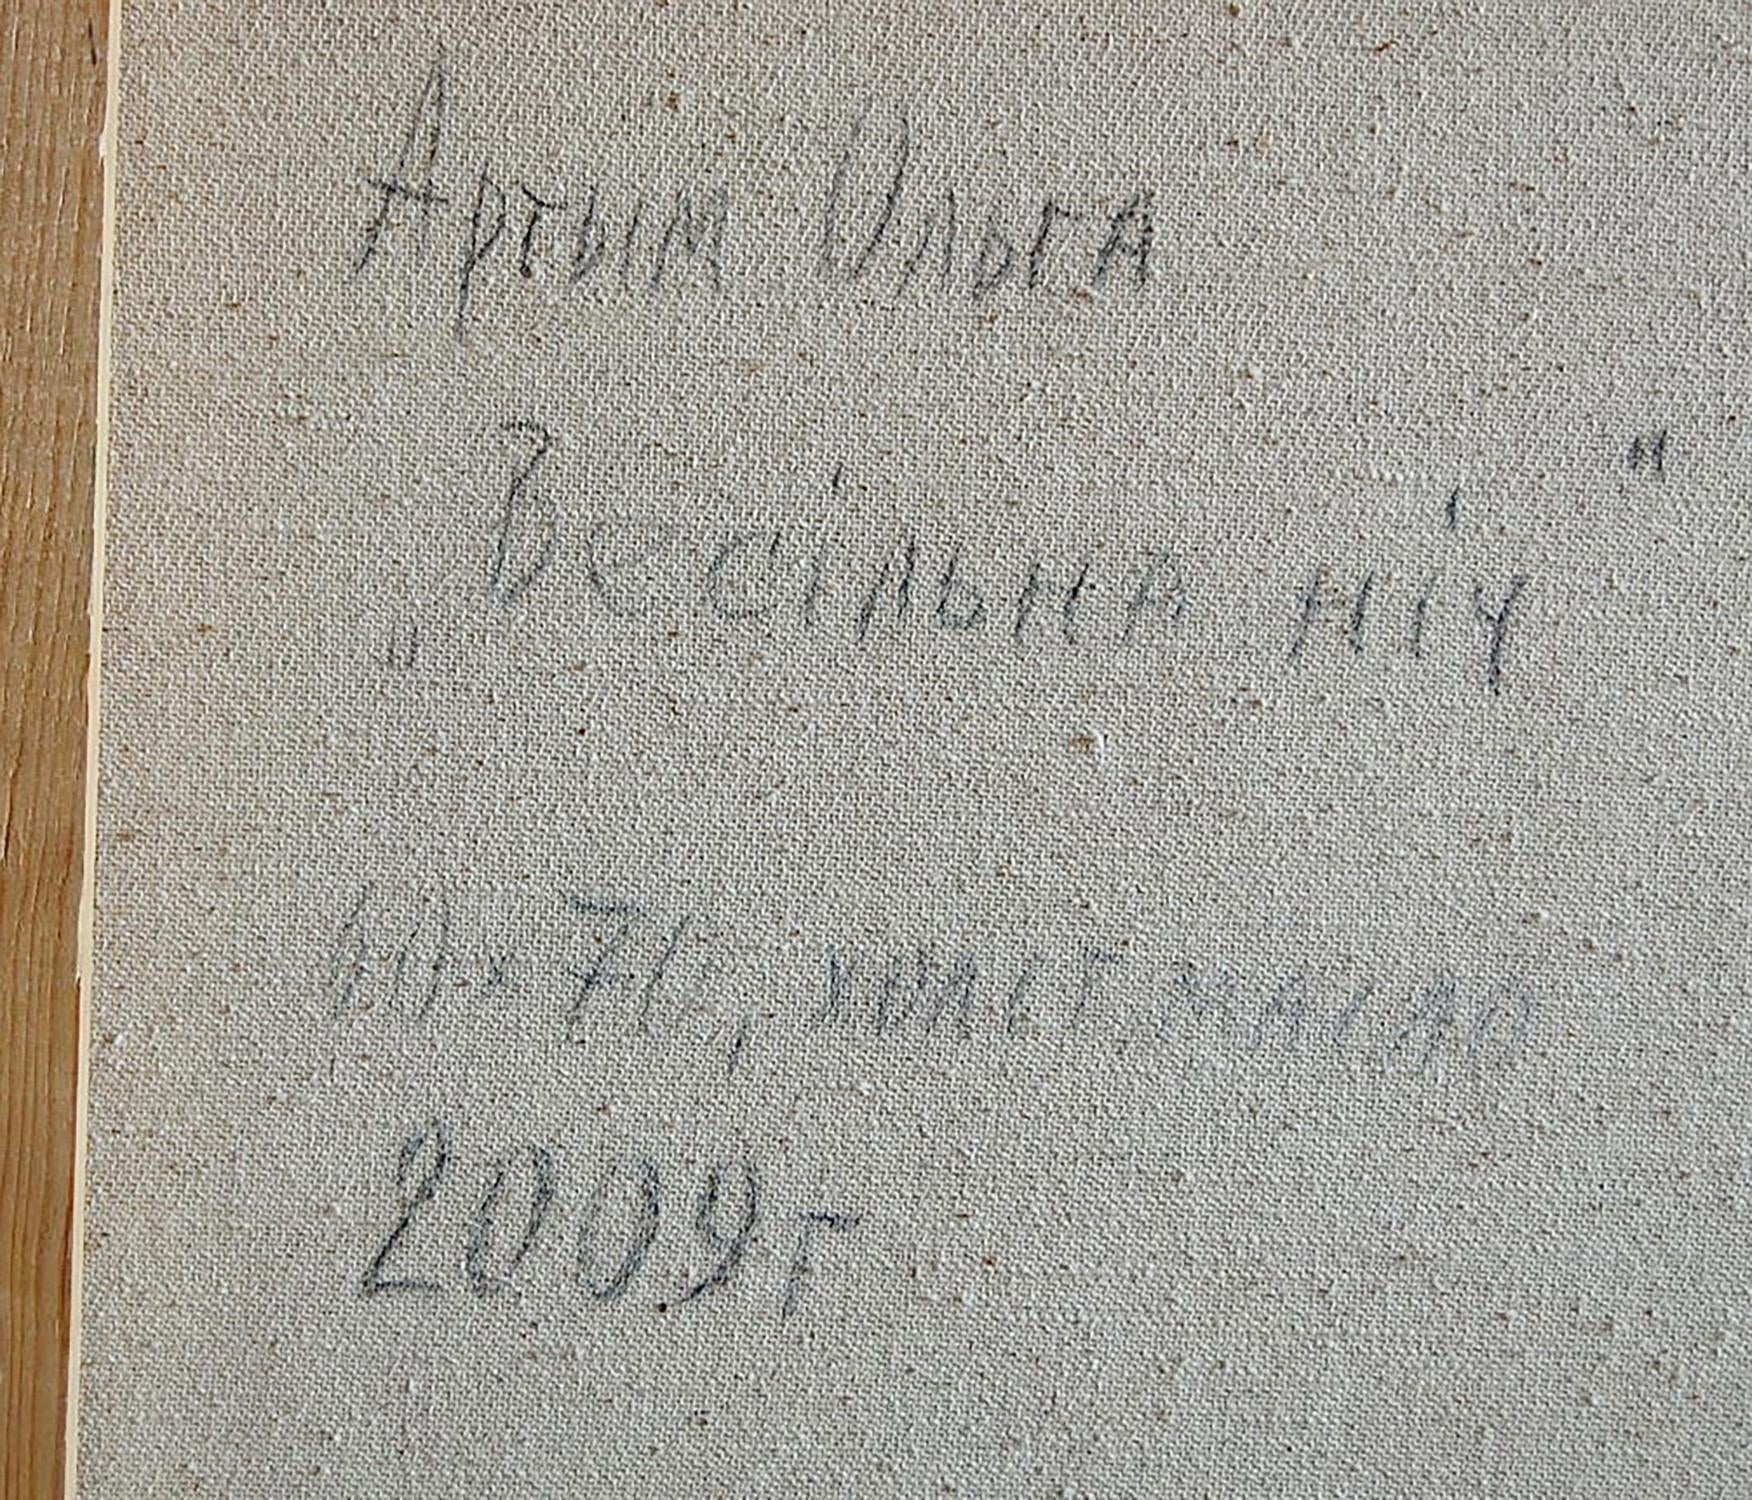 Артым Ольга
„Весільна ніч"
60 x 70, холст, масло
2009г